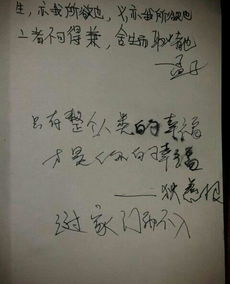 生，亦我所欲也，义，亦我所欲也
二者不可得兼，舍生而取义者也
——孟子
只有整个人类的幸福
才是你的幸福
——狄慈根
过家门而不入